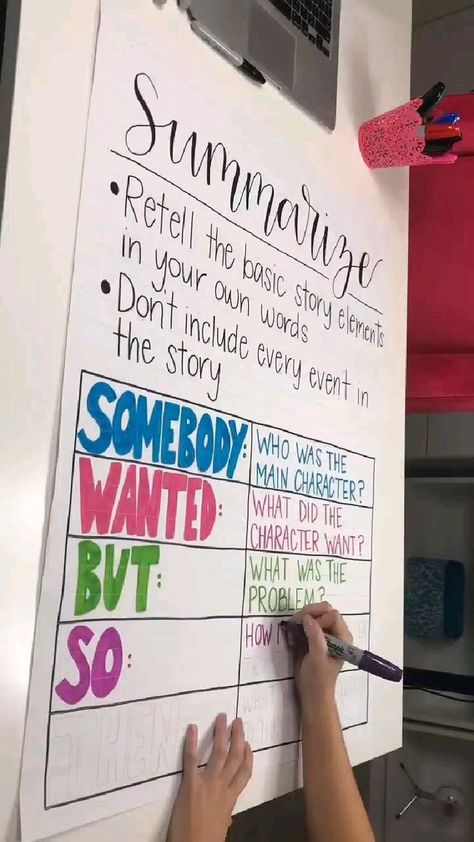 Summarize
• Retell the basic story elements
in your own words
• Don't include every event in
the story
SOMEBODY:
WHO WAS THE
MAIN CHARACTER?
WANTED:
WHAT DID THE
CHARACTER WANT?
BUT:
WHAT WAS THE
PROBLEM?
SO:
HOW
THEN
Sharpie